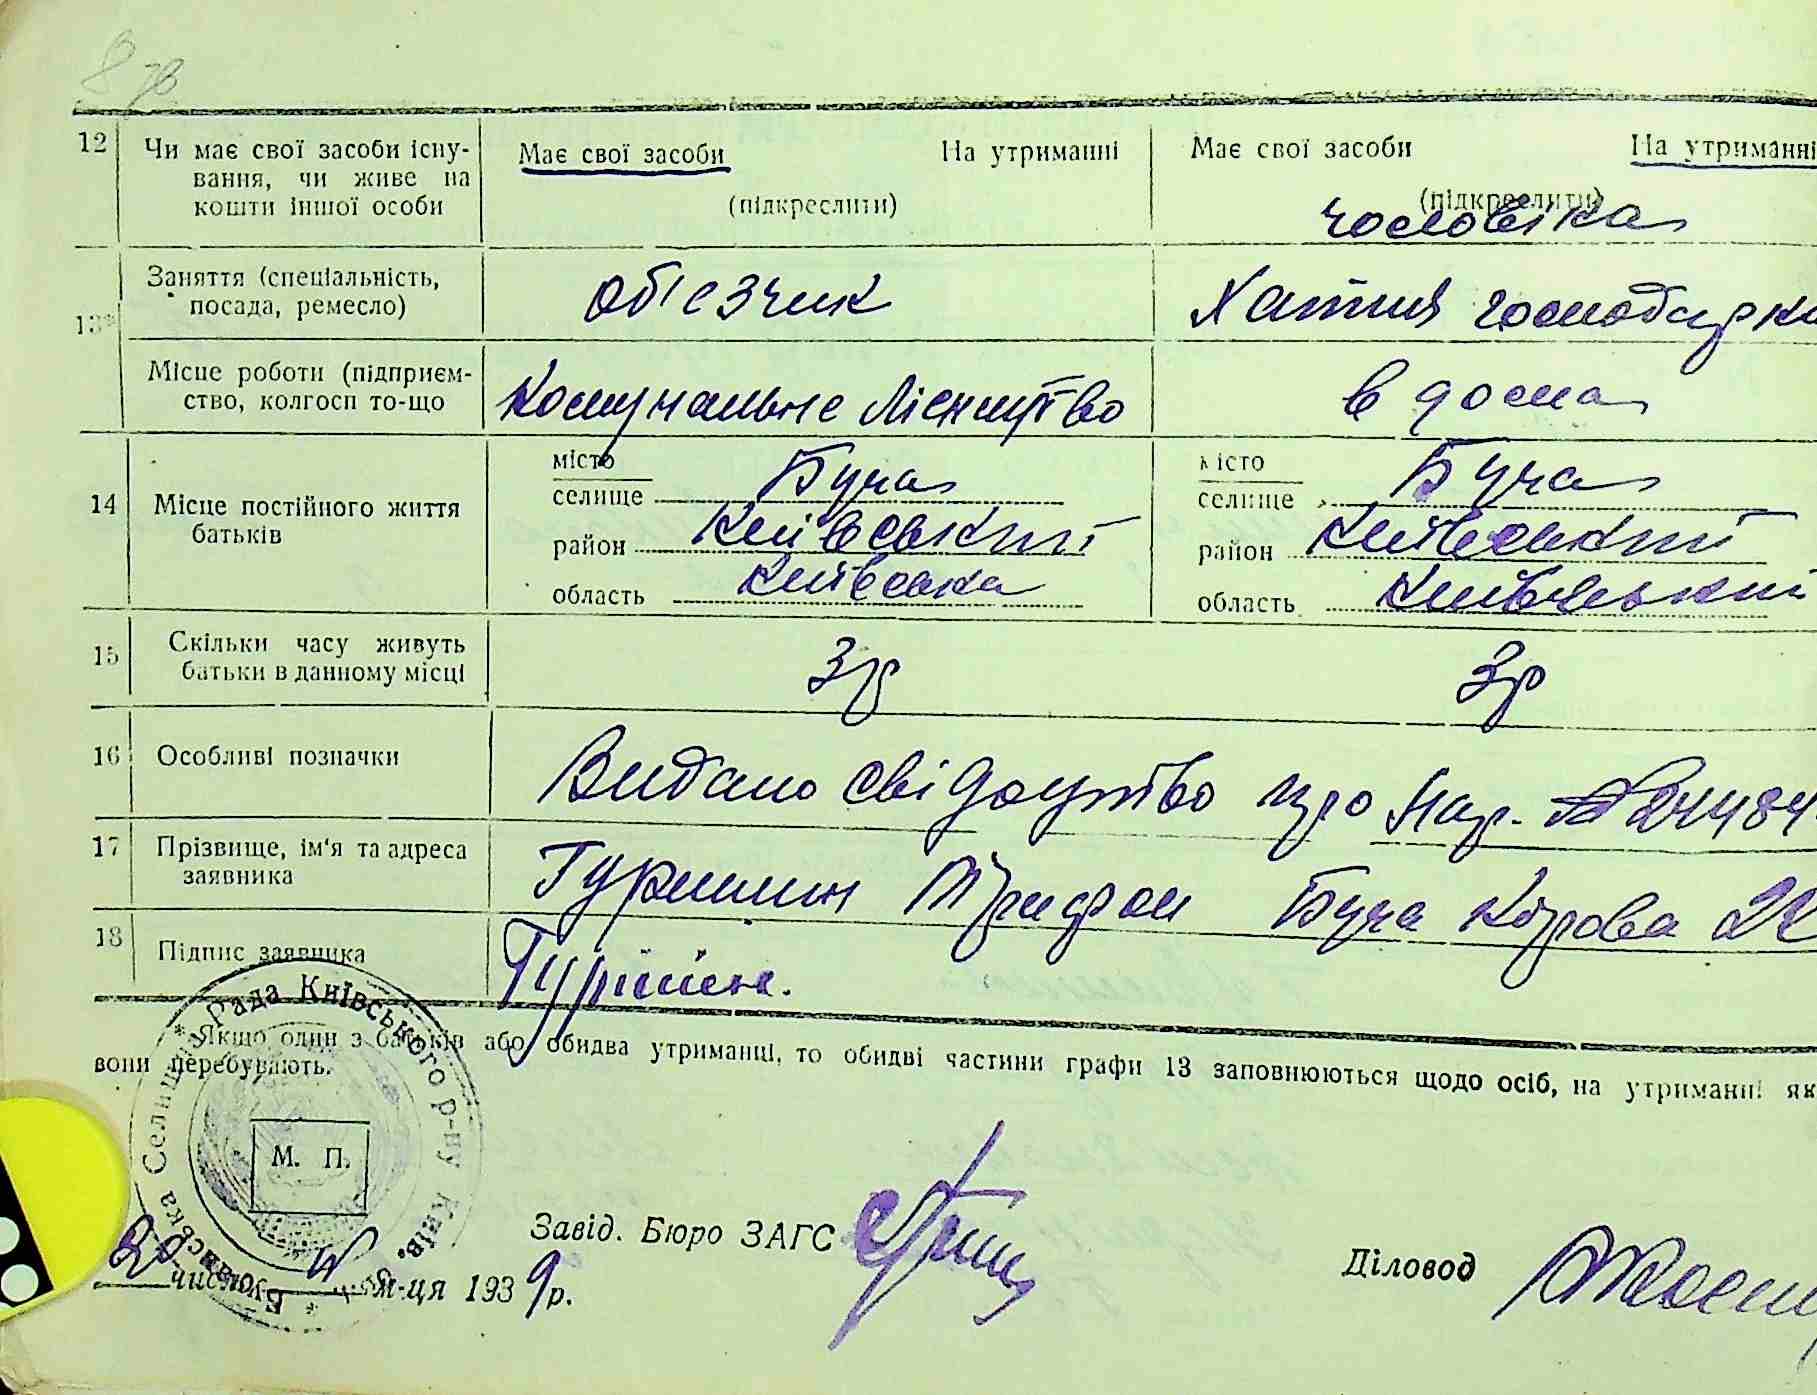 12 Чи має свої засоби існу- Має свої засоби На утриманні Має свої засоби На утриманні
вання, чи живе на
кошти іншої особи (підкреслити) (підкреслити)
чоловіка
Заняття (спеціальність, об'єзчик Хатня господарка
посада, ремесло)
13*
Місце роботи (підприєм- Комунальне Лісництво в дома
ство, колгосп то-що
місто Буча місто Буча
14 Місце постійного життя селище селище
батьків район Київський район Київський
область Київська область Київський
15 Скільки часу живуть 3р 3р
батьки в данному місці
16 Особливі позначки Видано свідоцтво про Нар.
17 Прізвище, ім'я та адреса Гуршин Трифон Буча Кірова
заявника
18 Підпис заявника Гуршин.
Якщо один з батьків або обидва утриманці, то обидві частини графи 13 заповнюються щодо осіб, на утриманні як
вони перебувають.
Селищна Рада Київського р-ну Київ.
М. П.
Завід. Бюро ЗАГС
Діловод
числа м-ця 1939р.